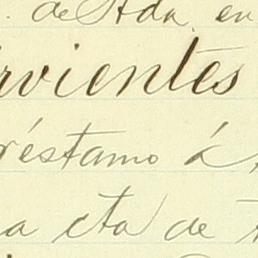 de Hda. en
rvientes
réstamo á
a cta de